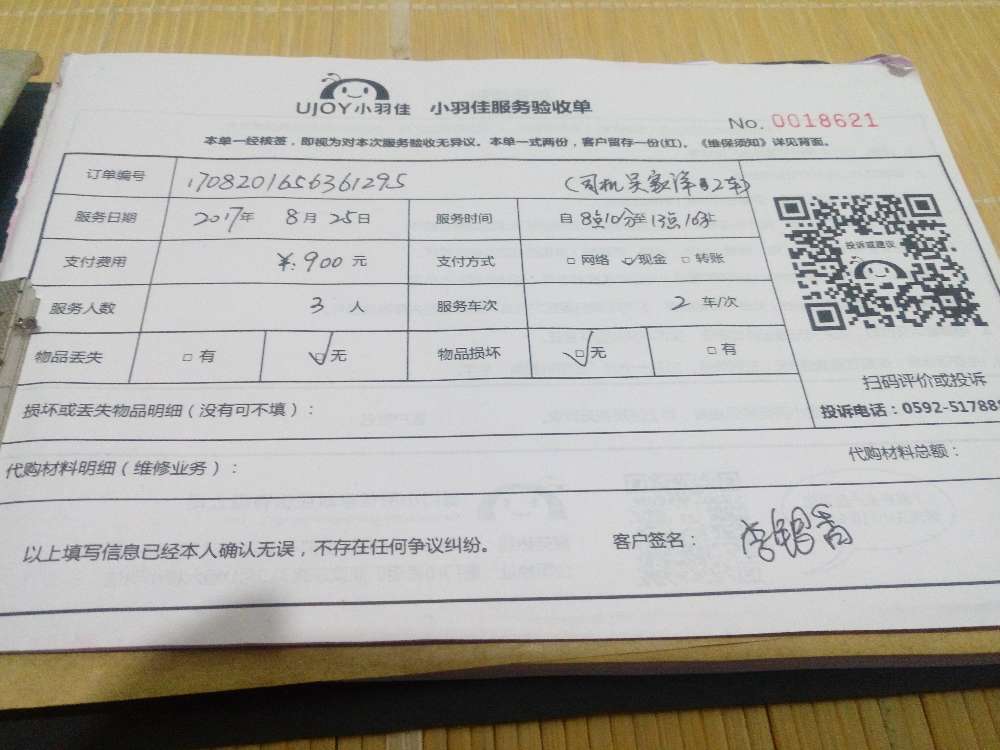 UJOY小羽佳 小羽佳服务验收单
No. 0018621
本单一经核签，即视为对本次服务验收无异议。本单一式两份，客户留存一份(红)。《维保须知》详见背面。
订单编号 170820165636129S (司机吴家洋 2车)
服务日期 2017年 8月 25日 服务时间 自 8点10分至13点10分止
投诉或建议
支付费用 ¥:900 元 支付方式 □网络 ✓现金 □转账
服务人数 3 人 服务车次 2 车/次
物品丢失 □有 ☑无 物品损坏 ☑无 □有
扫码评价或投诉
投诉电话：0592-51788
损坏或丢失物品明细（没有可不填）：
代购材料明细（维修业务）： 代购材料总额：
以上填写信息已经本人确认无误，不存在任何争议纠纷。 客户签名：